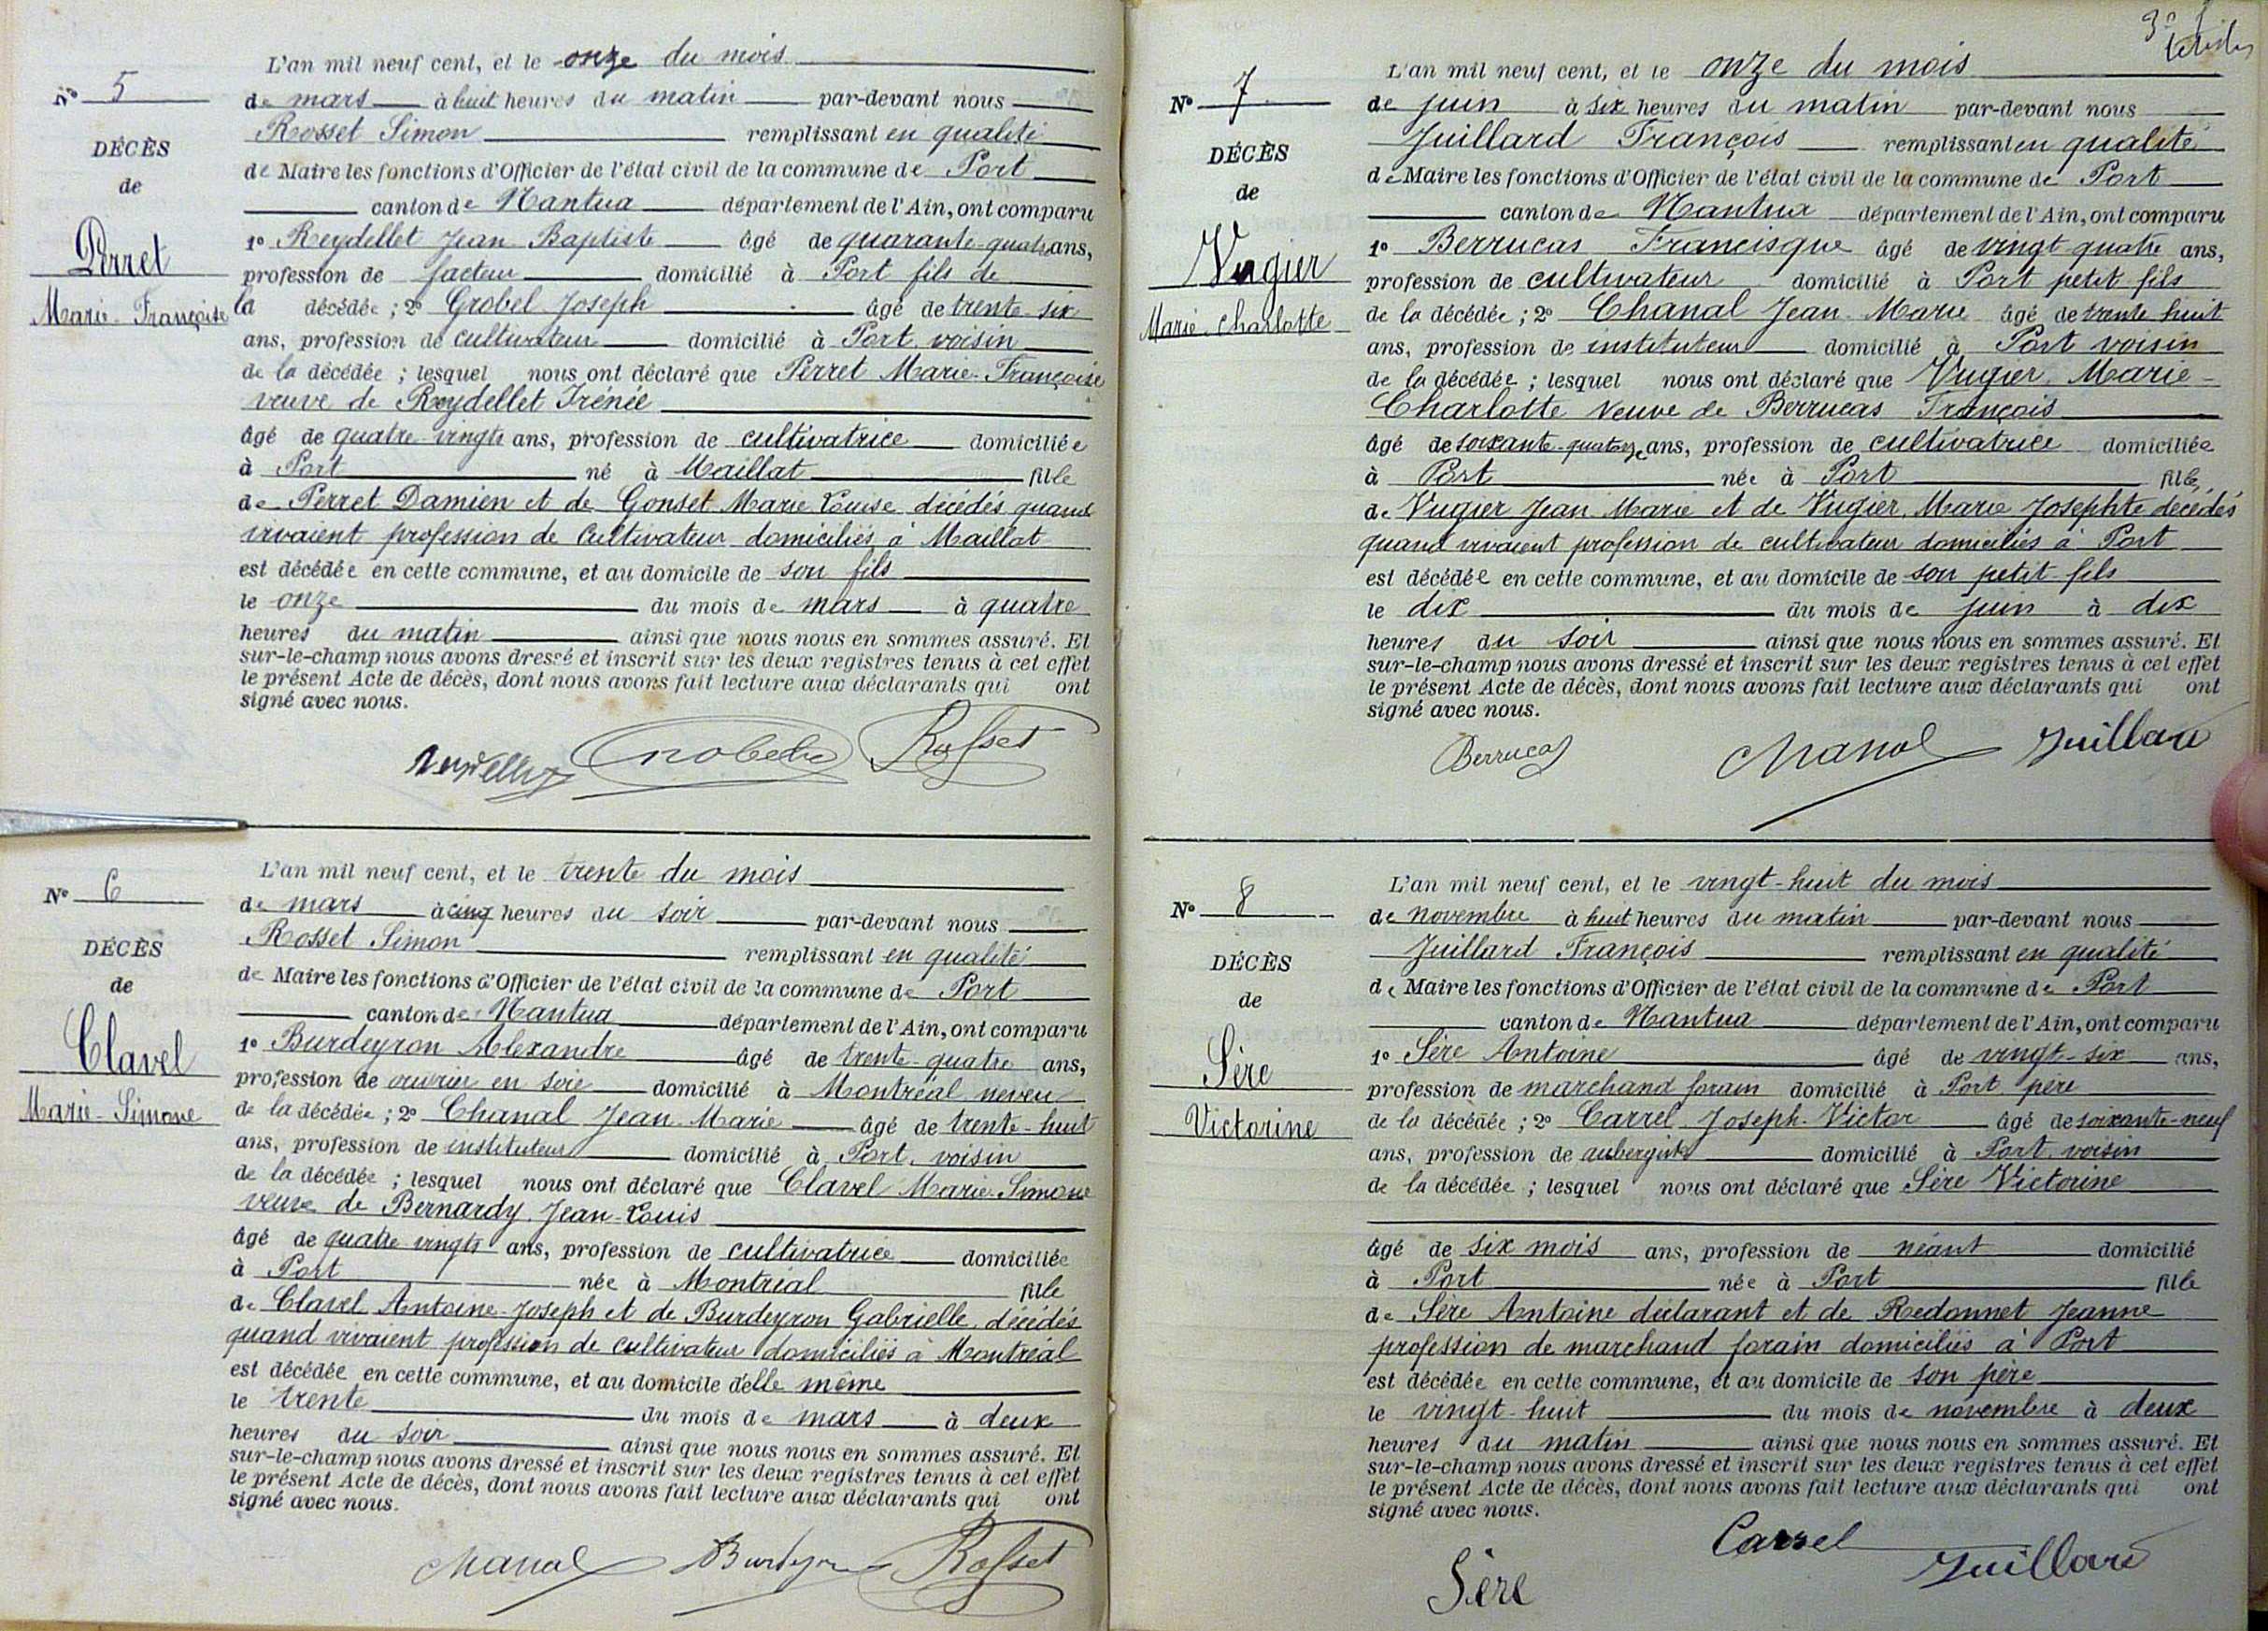 L'an mil neuf cent, et le onze du mois
No 5
de mars à huit heures du matin par-devant nous
Rosset Simon remplissant en qualité
DÉCÈS
de Maire les fonctions d'Officier de l'état civil de la commune de Port
de
canton de Nantua département de l'Ain, ont comparu
Perret
1o Reydellet Jean-Baptiste âgé de quarante-quatre ans,
profession de facteur domicilié à Port fils de
Marie-Françoise
la décédée ; 2o Grobel Joseph âgé de trente-six
ans, profession de cultivateur domicilié à Port, voisin
de la décédée ; lesquel nous ont déclaré que Perret Marie-Françoise
veuve de Reydellet Irénée
âgé de quatre-vingts ans, profession de cultivatrice domiciliée
à Port né à Maillat fille
de Perret Damien et de Gonset Marie Louise, décédés quand
vivaient profession de cultivateur domiciliés à Maillat
est décédée en cette commune, et au domicile de son fils
le onze du mois de mars à quatre
heures du matin ainsi que nous nous en sommes assuré. Et
sur-le-champ nous avons dressé et inscrit sur les deux registres tenus à cet effet
le présent Acte de décès, dont nous avons fait lecture aux déclarants qui ont
signé avec nous.
Rosset
L'an mil neuf cent, et le trente du mois
No 6
de mars à cinq heures du soir par-devant nous
Rosset Simon remplissant en qualité
DÉCÈS
de Maire les fonctions d'Officier de l'état civil de la commune de Port
de
canton de Nantua département de l'Ain, ont comparu
Clavel
1o Burdeyron Alexandre âgé de trente-quatre ans,
profession de ouvrier en soie domicilié à Montréal neveu
Marie-Simone
de la décédée ; 2o Chanal Jean-Marie âgé de trente-huit
ans, profession de instituteur domicilié à Port, voisin
de la décédée ; lesquel nous ont déclaré que Clavel Marie-Simone
veuve de Bernardy Jean-Louis
âgé de quatre-vingts ans, profession de cultivatrice domiciliée
à Port née à Montréal fille
de Clavel Antoine-Joseph et de Burdeyron Gabrielle, décédés
quand vivaient profession de cultivateur domiciliés à Montréal
est décédée en cette commune, et au domicile d'elle même
le trente du mois de mars à deux
heures du soir ainsi que nous nous en sommes assuré. Et
sur-le-champ nous avons dressé et inscrit sur les deux registres tenus à cet effet
le présent Acte de décès, dont nous avons fait lecture aux déclarants qui ont
signé avec nous.
Chanal Rosset
L'an mil neuf cent, et le onze du mois
No 7
de juin à six heures du matin par-devant nous
Juillard François remplissant en qualité
DÉCÈS
de Maire les fonctions d'Officier de l'état civil de la commune de Port
de
canton de Nantua département de l'Ain, ont comparu
Vugier
1o Berrucas Francisque âgé de vingt quatre ans,
profession de cultivateur domicilié à Port petit fils
Marie-Charlotte
de la décédée ; 2o Chanal Jean-Marie âgé de trente huit
ans, profession de instituteur domicilié à Port voisin
de la décédée ; lesquel nous ont déclaré que Vugier, Marie-
Charlotte veuve de Berrucas François
âgé de soixante-quatorze ans, profession de cultivatrice domiciliée
à Port née à Port fille
de Vugier Jean-Marie et de Vugier, Marie Josephte décédés
quand vivaient profession de cultivateur domiciliés à Port
est décédée en cette commune, et au domicile de son petit-fils
le dix du mois de juin à dix
heures du soir ainsi que nous nous en sommes assuré. Et
sur-le-champ nous avons dressé et inscrit sur les deux registres tenus à cet effet
le présent Acte de décès, dont nous avons fait lecture aux déclarants qui ont
signé avec nous.
Berrucas Chanal Juillard
L'an mil neuf cent, et le vingt-huit du mois
No 8
de novembre à huit heures du matin par-devant nous
Juillard François remplissant en qualité
DÉCÈS
de Maire les fonctions d'Officier de l'état civil de la commune de Port
de
canton de Nantua département de l'Ain, ont comparu
Sère
1o Sère Antoine âgé de vingt-six ans,
profession de marchand forain domicilié à Port, père
Victorine
de la décédée ; 2o Carrel Joseph-Victor âgé de soixante-neuf
ans, profession de aubergiste domicilié à Port, voisin
de la décédée ; lesquel nous ont déclaré que Sère Victorine
âgé de six mois ans, profession de néant domicilié
à Port née à Port fille
de Sère Antoine déclarant et de Redonnet Jeanne
profession de marchand forain domiciliés à Port
est décédée en cette commune, et au domicile de son père
le vingt-huit du mois de novembre à deux
heures du matin ainsi que nous nous en sommes assuré. Et
sur-le-champ nous avons dressé et inscrit sur les deux registres tenus à cet effet
le présent Acte de décès, dont nous avons fait lecture aux déclarants qui ont
signé avec nous.
Sère Carrel Juillard